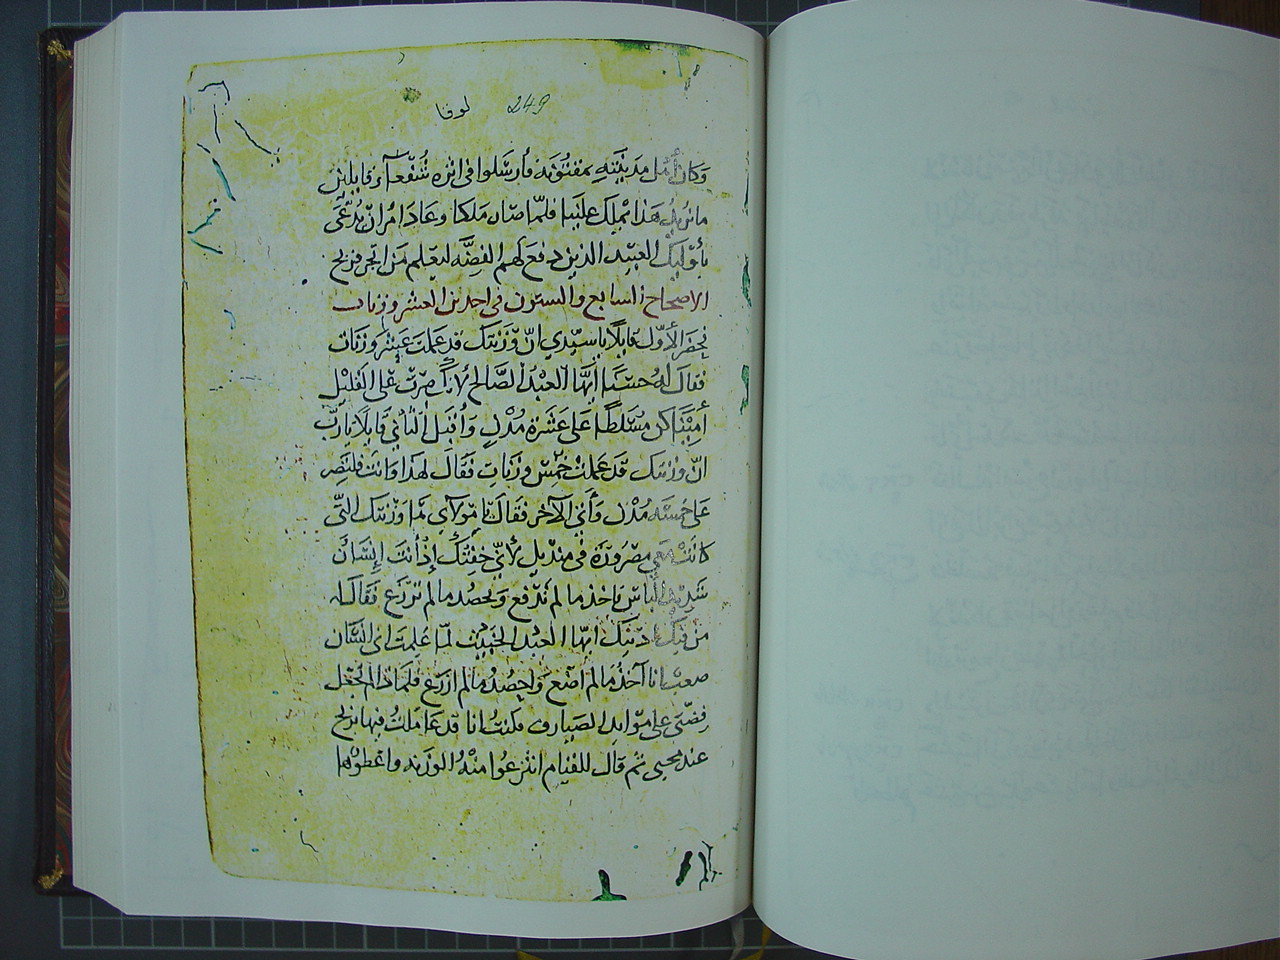 لوقا 249
وكان أهل مدينته يمقتونه فأرسلوا في اثره شفعآء قايلين
ما نريد هذا يملك علينا فلمّا صار ملكا وعاد امر ان يُدعَى
بأوليك العبيد الذين دفع لهم الفضّه ليعلم من اتجر فربح
الاصحاح السابع والستون في احدين العشر وزنات
فحضر الأوّل قايلاً يا سيّدي انّ وَزْنتك قد عملت عشر وزنات
فقال له حسنًا أيّها العبد الصّالح لانّك صرت على القليل
أمينًا كن مُسَلطًا على عشرة مُدْن وأقبل الثاني قايلاً يا ربّ
انّ وزنتك قد عملت خمس وزنات فقال لهذا وانت فلتصِر
على خمسه مُدْن وأتى الآخر فقال يا مولاي لها وزنتك التّي
كانت معي مصرورة في منديل لأنّي خفتك إذ أنت إنسان
شديد الباس تاخذ ما لم تدفع وتحصد ما لم تزرع فقال له
من فيك ادينك ايها العبد الخبيث لمّا علمت انى انسان
صعب انا آخذ ما لم اضع واحصد ما لم ازرع فلماذا لم تجعل
فضّتى على موايد الصيارف فكنتُ انا قد عاملتُ فيها بربح
عند مجيى ثم قال للقيام انتزعوا منه الوزنه واعطوها